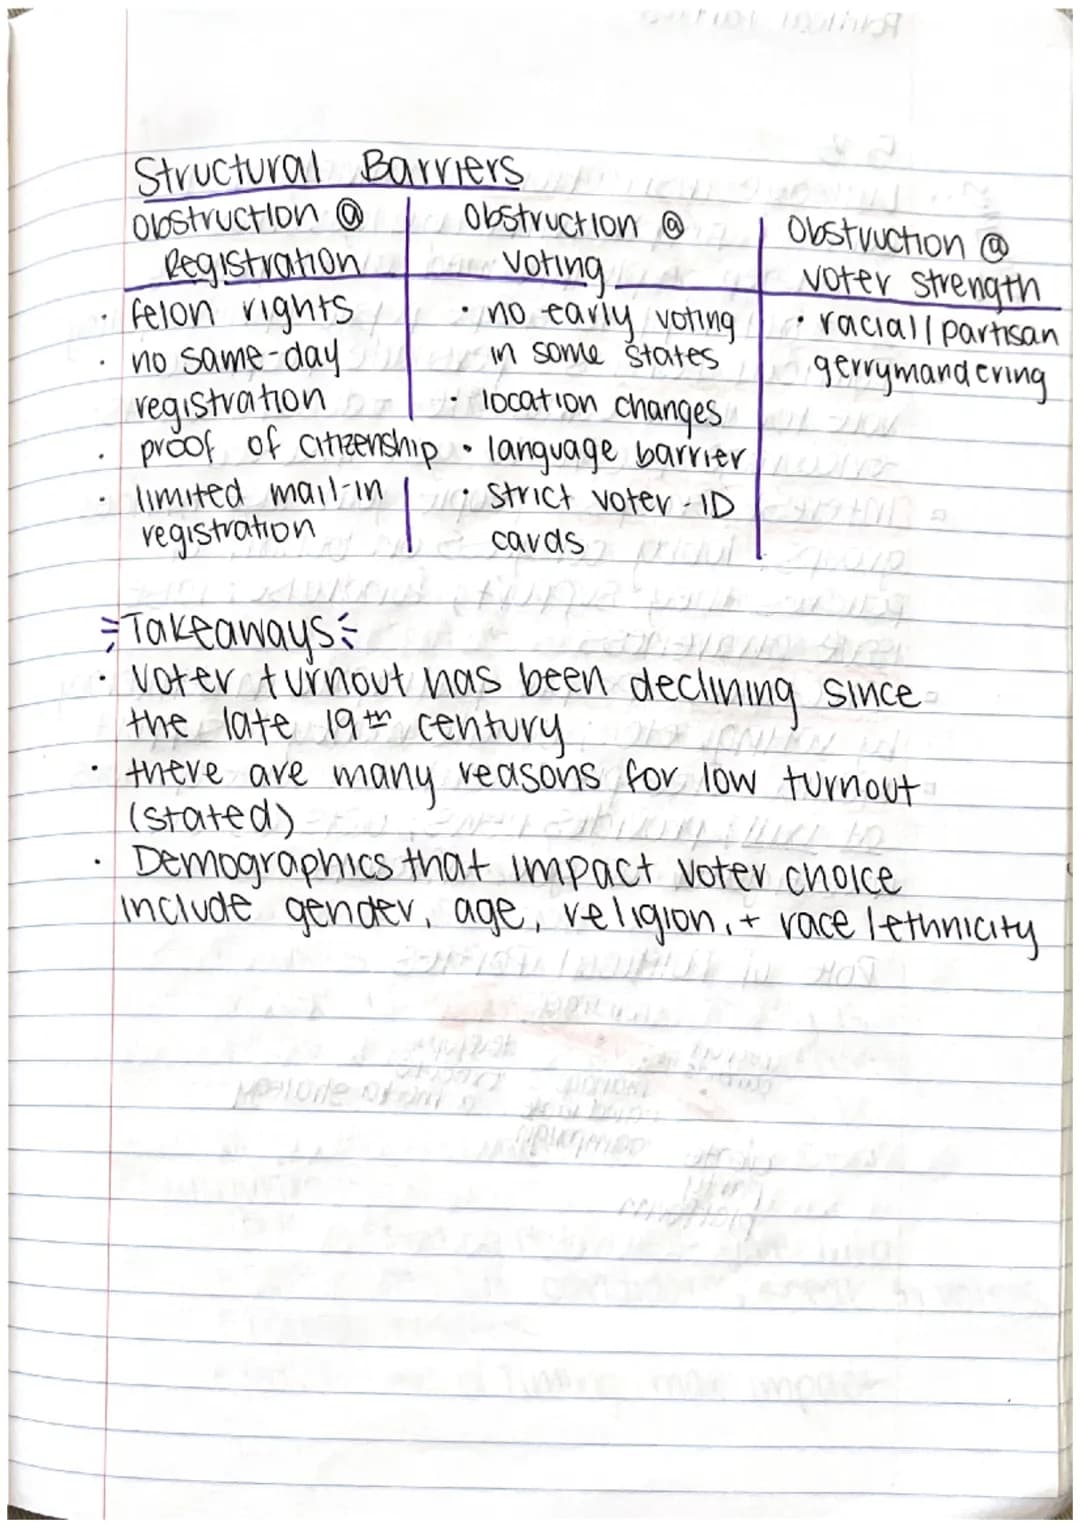 Structural Barriers
Obstruction @
Registration
· felon rights
· no same-day
registration
· proof of citizenship
· limited mail-in
registration
Obstruction @
Voting
· no early voting
in some states
· location changes
· language barrier
· strict voter-ID
cards
Obstruction @
voter strength
· racial/partisan
gerrymandering
Takeaways
· Voter turnout has been declining since
the late 19th century
· there are many reasons for low turnout
(stated)
· Demographics that impact voter choice
include gender, age, religion, + race/ethnicity